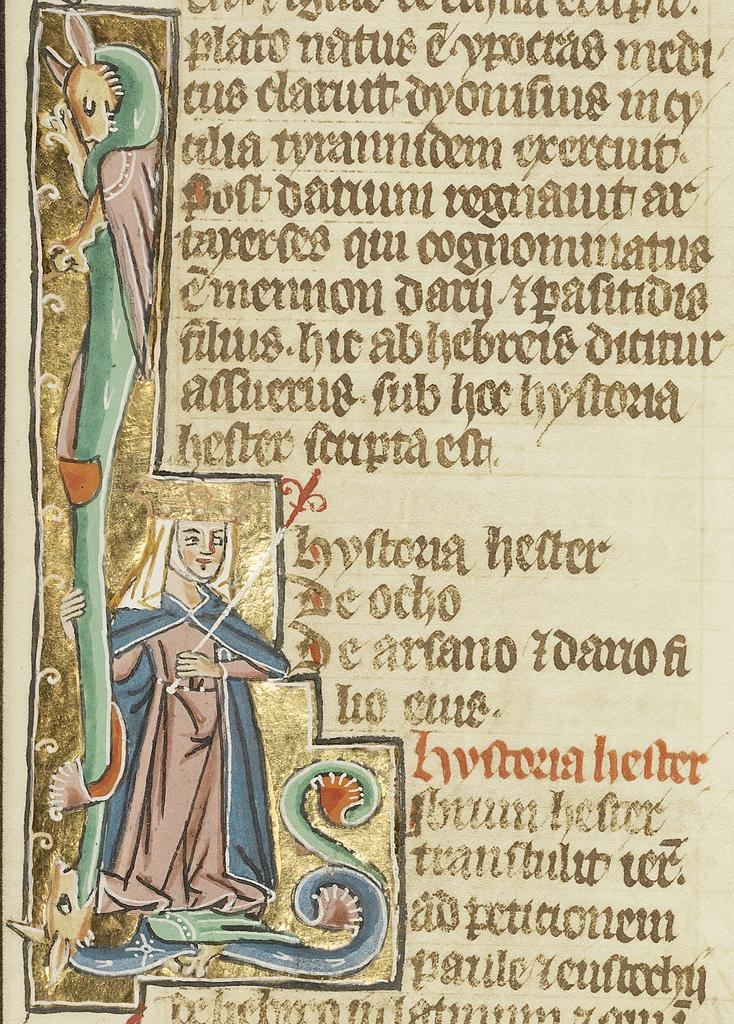 plato natus ē ypocras medi
cus claruit. dyonisius in cy
cilia tyrannidem exercuit.
Post darium regnauit ar
taxerses qui cognominatus
ē mennon darij ⁊ pasitidis
filius. hic ab hebreis dicitur
assuerus. sub hoc hystoria
hester scripta est.
hystoria hester
De ocho
De arsano ⁊ dario fi
lio eius.
hystoria hester
Ibrum hester
transtulit ier̄.
ad petitionem
paule ⁊ eustochij
de hebreo in latinum ⁊